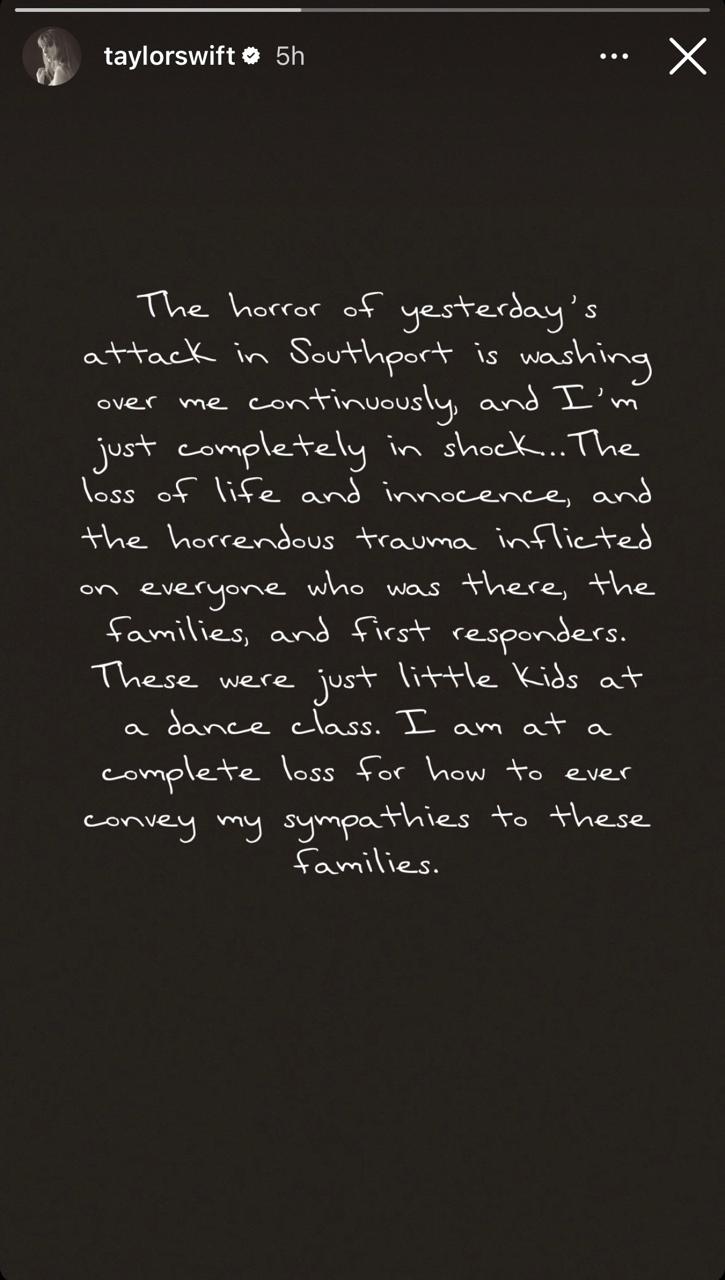 taylorswift 5h
The horror of yesterday's
attack in Southport is washing
over me continuously, and I'm
just completely in shock...The
loss of life and innocence, and
the horrendous trauma inflicted
on everyone who was there, the
families, and first responders.
These were just little kids at
a dance class. I am at a
complete loss for how to ever
convey my sympathies to these
families.